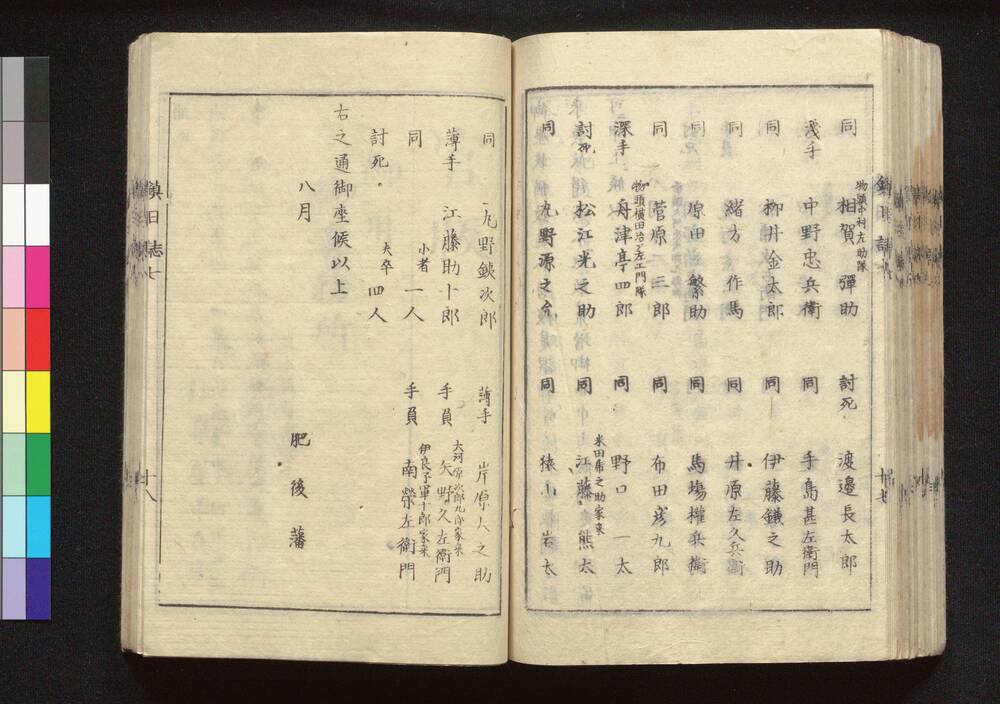 物頭中村左助隊
同 相賀彈助 討死 渡邉長太郎
浅手 中野忠兵衛 同 手島甚左衛門
同 柳井金太郎 同 伊藤鎌之助
同 緒方作馬 同 井原左久兵衛
同 原田繁助 同 馬場權兵衛
同 菅原二三郎 同 布田彦九郎
物頭横田治左エ門隊
深手 舟津亭四郎 同 野口一太
米田乕之助家来
討死 松江光之助 同 江藤熊太
同 九野源之允 同 猿山岩太
十七
同 九野鉄次郎 薄手 岸原大之助
大河原次郎九郎家来
薄手 江藤助十郎 手負 矢野久左衛門
伊良子軍十郎家来
同 小者 一人 手負 南榮左衛門
討死 夫卒 四人
右之通御座候以上
八月
肥後藩
鎮日誌七
十八